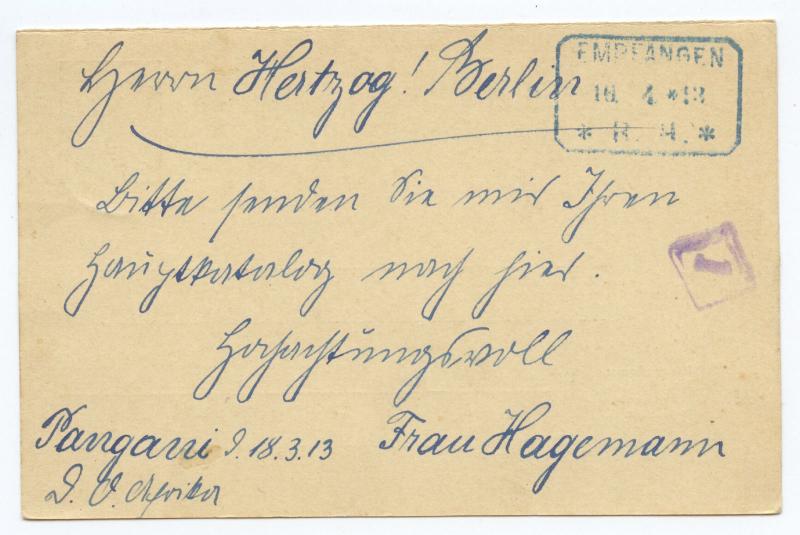 Herrn Hertzog! Berlin
EMPFANGEN
10. 4. *13
* R. H. *
Bitte senden Sie mir Ihren
Hauptkatalog nach hier.
1
Hochachtungsvoll
Pangani d. 18.3.13 Frau Hagemann
D. O. Afrika